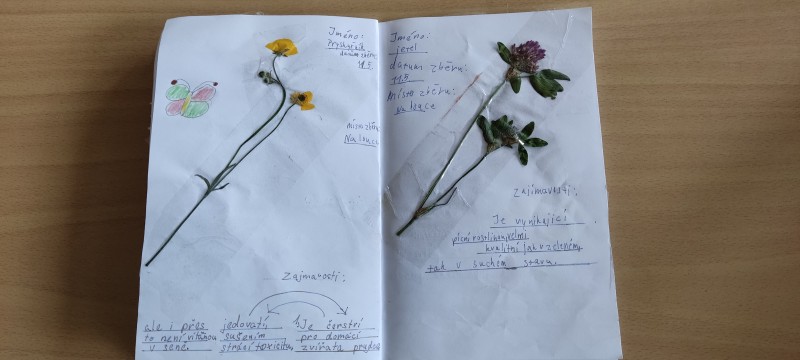 Jméno:
Pryskyřník
datum sběru:
11.5.
místo sběru:
Na louce
Zajímavosti:
ale i přes jedovatí, Je čerství
to není vítanou sušením pro domácí
v seně. strácí toxicitu, zvířata prudce
Jméno:
jetel
datum sběru:
11.5
místo sběru:
Na louce
zajímavosti:
Je vynikající
pícní rostlina, velmi
kvalitní jak v zeleném,
tak v suchém stavu.